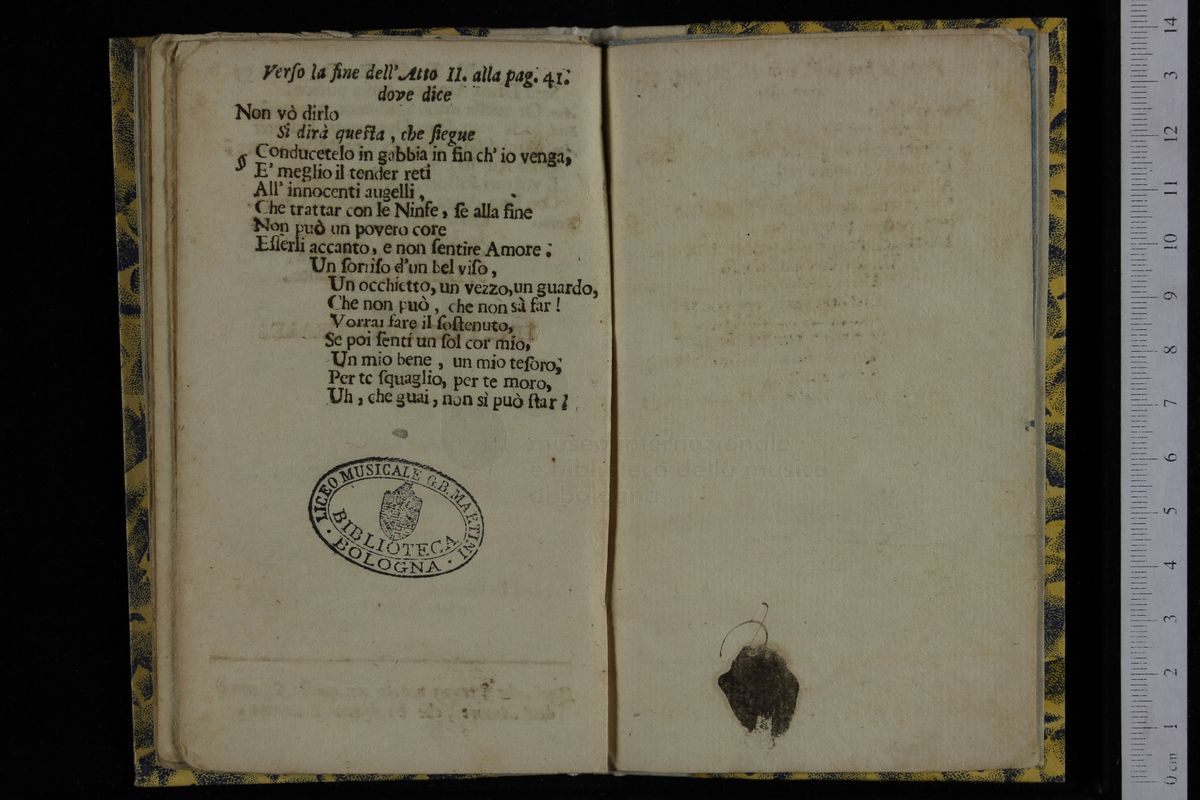 Verſo la fine dell'Atto II. alla pag. 41.
dove dice
Non vò dirlo
Si dirà queſta, che ſiegue
Conducetelo in gabbia in fin ch' io venga;
E' meglio il tender reti
All' innocenti augelli,
Che trattar con le Ninfe, ſe alla fine
Non può un povero core
Eſſerli accanto, e non ſentire Amore:
Un ſorriſo d'un bel viſo,
Un occhietto, un vezzo, un guardo,
Che non può, che non sà far!
Vorrai fare il ſoſtenuto,
Se poi ſenti un ſol cor mio,
Un mio bene, un mio teſoro;
Per te ſquaglio, per te moro,
Uh, che guai, non si può ſtar!
LICEO MUSICALE G.B. MARTINI
BIBLIOTECA
· BOLOGNA ·
museo internazionale
e biblioteca della musica
di bologna
14
3
12
11
10
9
8
7
6
5
4
3
2
1
0 cm